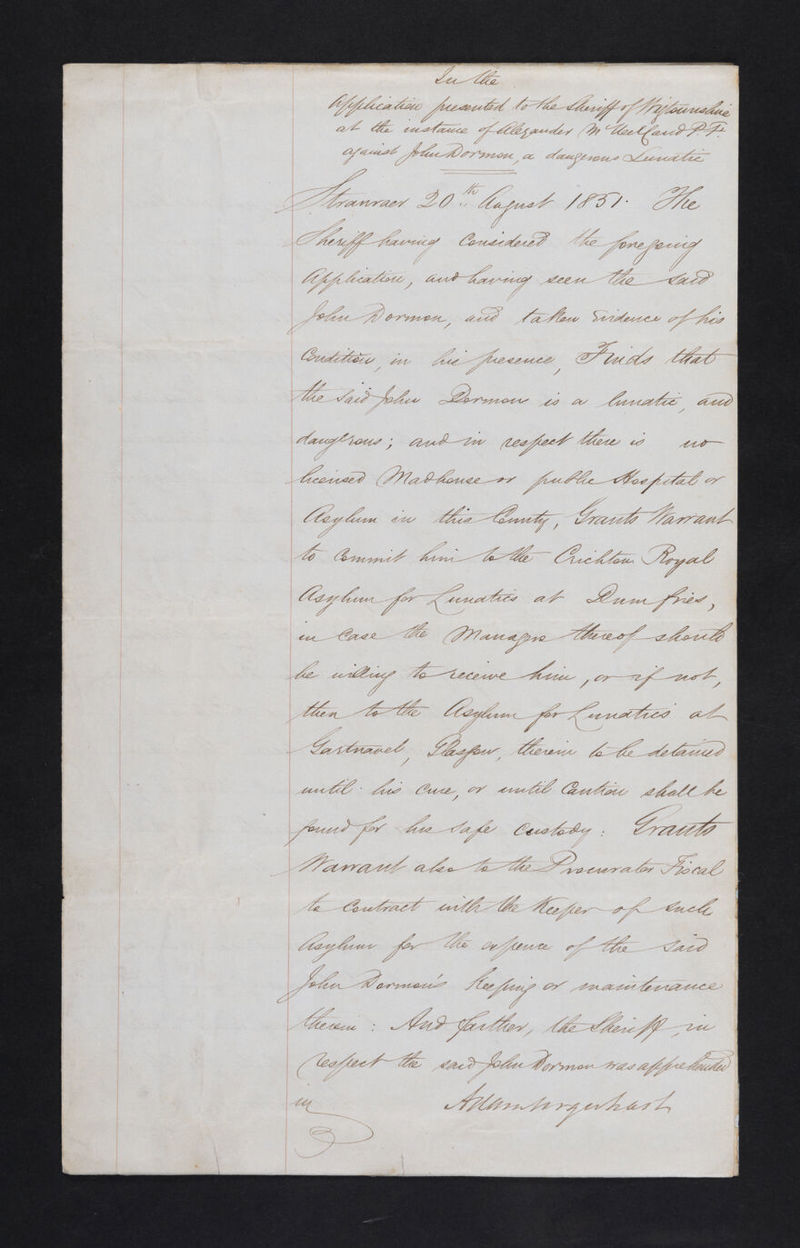 In the
Application presented to the Sheriff of Wigtownshire
at the instance of Alexander McNeel Caird P. F.
against John Dorman, a dangerous Lunatic
Stranraer 20th August 1851. The
Sheriff having Considered the foregoing
Application, and having seen the said
John Dorman, and taken Evidence of his
Condition, in his presence, Finds that
the said John Dorman is a lunatic, and
dangerous; and in respect there is no
licensed Madhouse or public Hospital or
Asylum in this County, Grants Warrant
to Commit him to the Crichton Royal
Asylum for Lunatics at Dumfries,
in Case the Managers thereof should
be willing to receive him, or if not,
then to the Asylum for Lunatics at
Gartnavel, Glasgow, therein to be detained
until his cure, or until Caution shall be
found for his safe custody: Grants
Warrant also to the Procurator Fiscal
to Contract with the Keeper of such
Asylum for the expence of the said
John Dorman's keeping or maintenance
therein: And farther, the Sheriff, in
respect the said John Dorman was apprehended
in